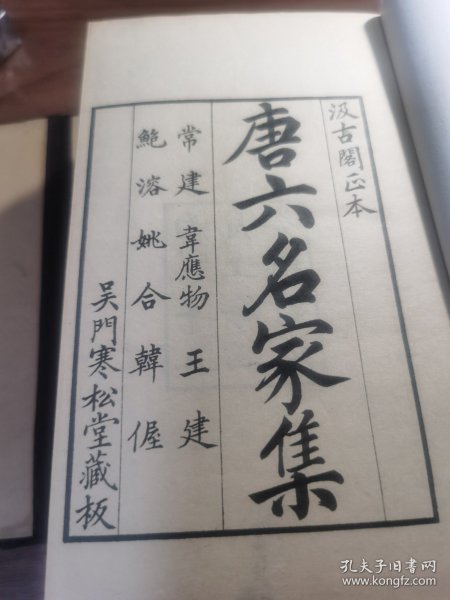 汲古閣正本
唐六名家集
常建 韋應物 王建
鮑溶 姚合 韓偓
吴門寒松堂藏板
孔夫子旧书网
www.kongfz.com